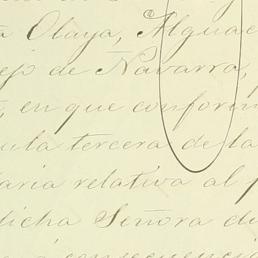 Olaya, Alguac
ejo de Navarra,
, en que conform
ula tercera de la
aria relativa al p
dicha Señora di
consecuencia